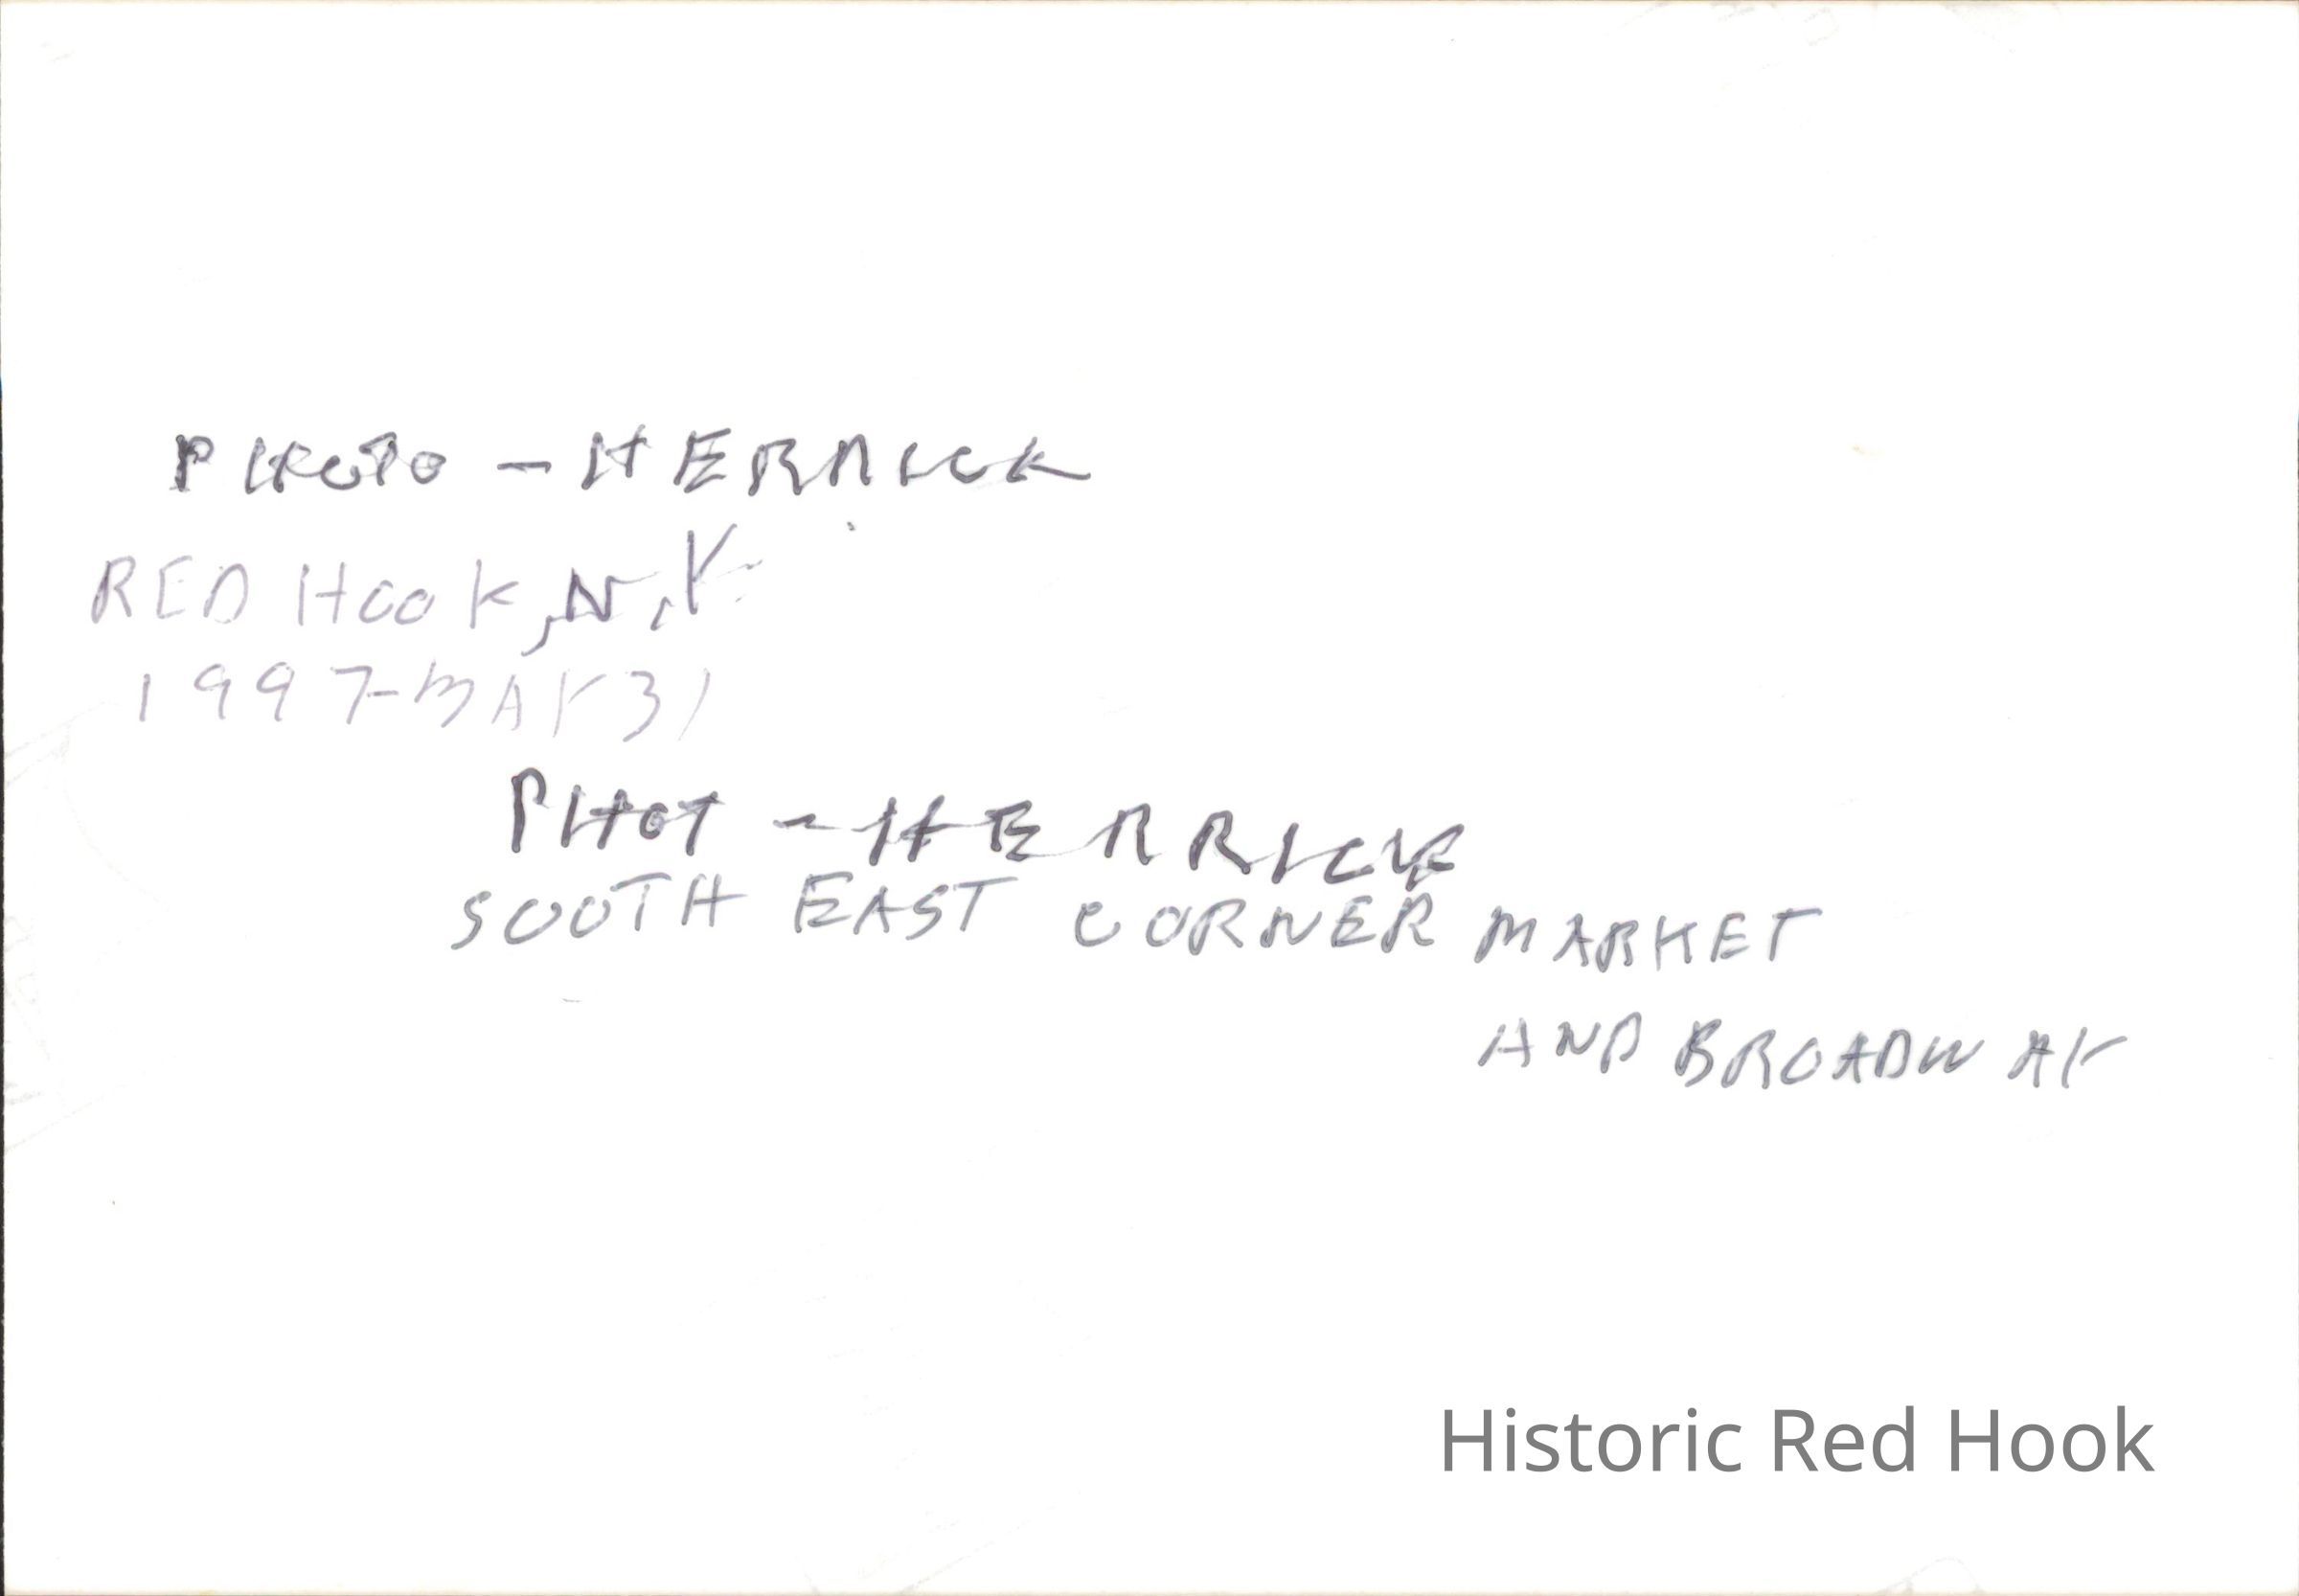 PHOTO - HERRICK
RED HOOK, N.Y.
1997-MAY 31
PHOT - HERRICK
SOUTH EAST CORNER MARKET
AND BROADWAY
Historic Red Hook